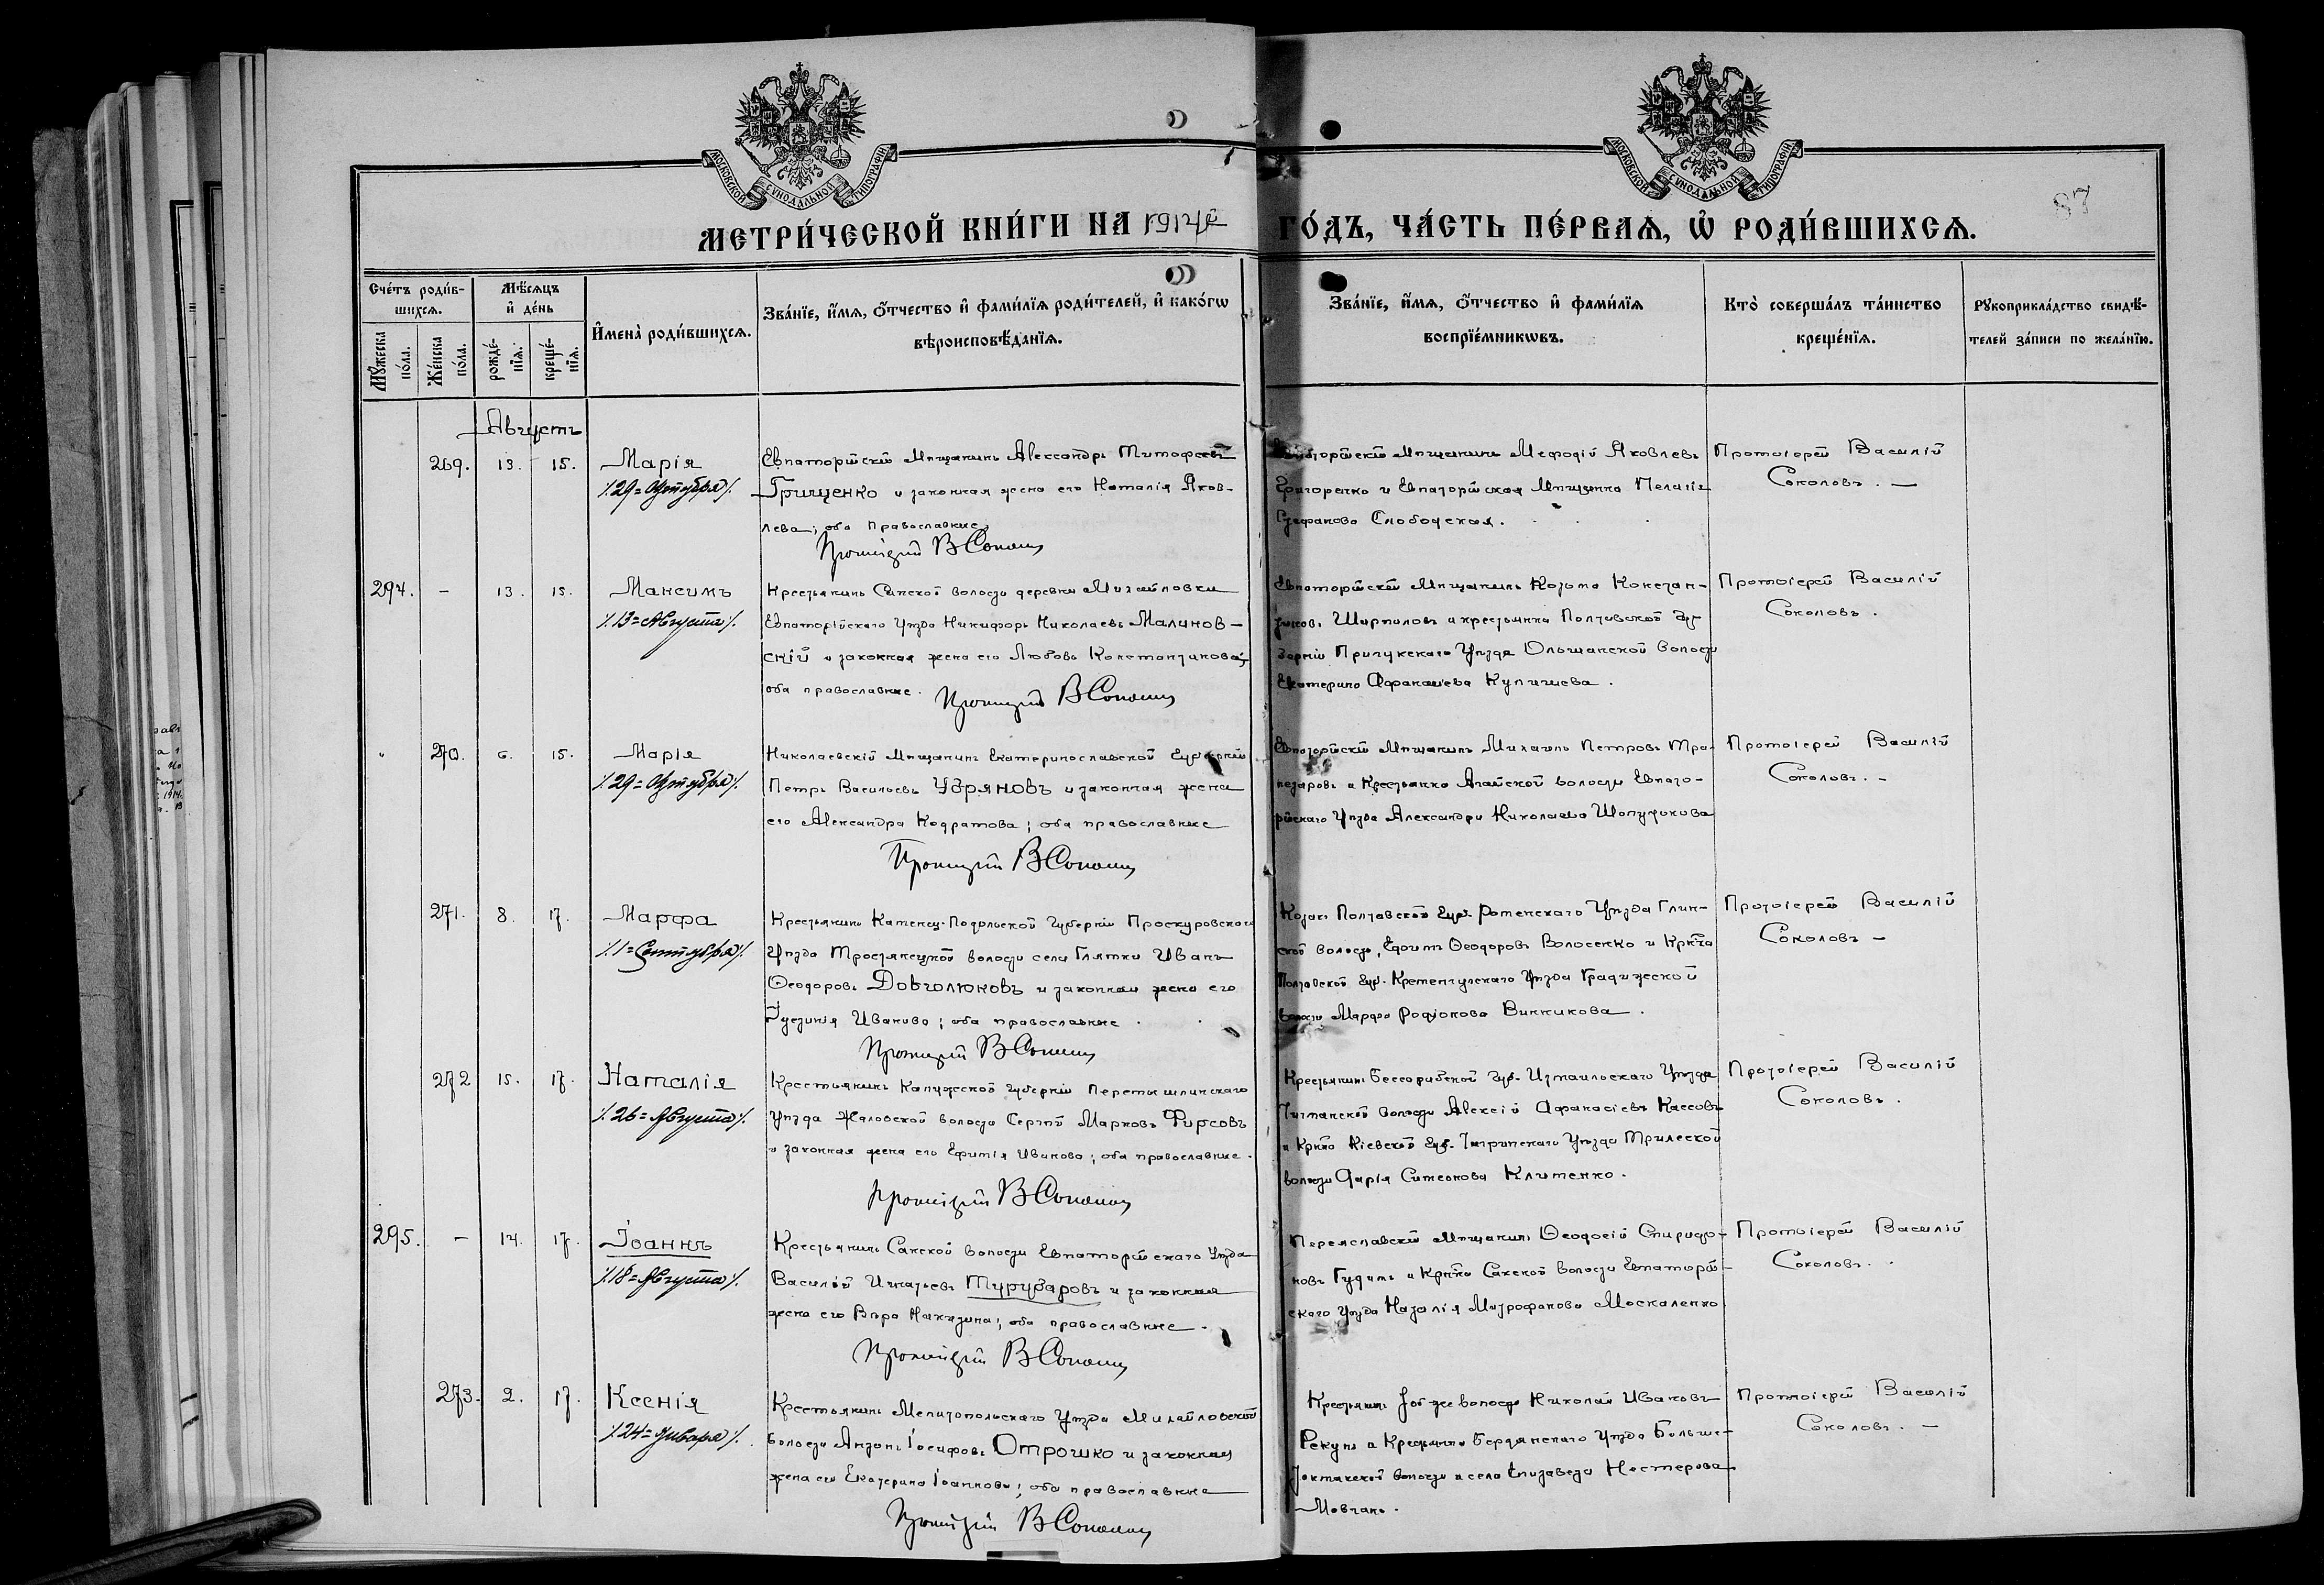 МОСКОВСКОЙ СѴНОДАЛЬНОЙ ТИПОГРАФІИ
МОСКОВСКОЙ СѴНОДАЛЬНОЙ ТИПОГРАФІИ
87
МЕТРИ́ЧЕСКОЙ КНИ́ГИ НА 1914й ГО́ДЪ, ЧА́СТЬ ПЕ́РВАѦ, Ѡ҆ РОДИ́ВШИХСѦ.
Сче́тъ роди́в-
шихсѧ.
Мꙋ́жеска по́ла.
Же́нска по́ла.
Мѣ́сѧцъ
и҆ де́нь
рожде́-нїѧ.
креще́-нїѧ.
И҆мена̀ роди́вшихсѧ.
Зва́нїе, и҆́мѧ, ѻ҆́тчество и҆ фамі́лїѧ роди́телей, и҆ како́гѡ
вѣроисповѣ́данїѧ.
Зва́нїе, и҆́мѧ, ѻ҆́тчество и҆ фамі́лїѧ
воспрїе́мникѡвъ.
Кто̀ соверша́лъ та́инство
креще́нїѧ.
Рꙋкоприкла́дство свидѣ́-
телей за́писи по жела́нїю.
Августъ
269. 13. 15. Марія
/.29=Октября/.
Евпаторійскій Мѣщанинъ Александръ Тимофеевъ
Грищенко и законная жена его Наталія Яков-
лева; оба Православные,
Протоіерей В Соколовъ
Евпаторійскій Мѣщанинъ Мефодій Яковлевъ
Григоренко и Евпаторійская Мѣщанка Пелагія
Стефанова Слободская.
Протоіерей Василій
Соколовъ. —
294. - 13. 15. Максимъ
/.13=Августа/.
Крестьянинъ Сакской волости деревни Михайловки
Евпаторійскаго Уѣзда Никифоръ Николаевъ Малинов-
скій и законная жена его Любовь Константинова;
оба православные. Протоіерей В Соколовъ
Евпаторійскій Мѣщанинъ Козьма Констан-
тиновъ Ширпиловъ и крестьянка Полтавской Гу-
берніи Прилукскаго Уѣзда Ольшанской волости
Екатерина Афанасіева Куличиева.
Протоіерей Василій
Соколовъ.
" 270. 6. 15. Марія
/.29=Октября/.
Николаевскій Мѣщанинъ Екатеринославской Губерніи
Петръ Васильевъ Убряновъ и законная жена
его Александра Кодратова; оба православные
Протоіерей В Соколовъ
Евпаторійскій Мѣщанинъ Михаилъ Петровъ Тра-
незаровъ и Крестьянка Агайской волости Евпато-
рійскаго Уѣзда Александра Николаева
Протоіерей Василій
Соколовъ. -
271. 8. 17. Марфа
/.1=Сентября/.
Крестьянинъ Каменец-Подольской Губерніи Проскуровскаго
Уѣзда Тростянецкой волости села Глятки Иванъ
Ѳеодоровъ Довголюковъ и законная жена его
Іустинія Иванова; оба православные.
Протоіерей В Соколовъ
Козакъ Полтавской Губ. Роменскаго Уѣзда Глин-
ской волости, Ефимъ Ѳеодоровъ Волосенко и Кр-нка
Полтавской Губ. Кременчугскаго Уѣзда Градижской
волости Марфа Родіонова Винникова.
Протоіерей Василій
Соколовъ -
272 15. 17. Наталія
/.26=Августа/.
Крестьянинъ Калужской губерніи Перемышлинскаго
Уѣзда Жаловской волости Сергѣй Марковъ Фирсовъ
и законная жена его Ефимія Иванова; оба православные.
Протоіерей В Соколовъ
Крестьянинъ Бессарабской губ. Измаильскаго Уѣзда
волости Алексій Афанасіевъ Кассовъ
и Кр-нка Кіевской Губ. Чигринскаго Уѣзда Трилеской
волости Дарія Симеонова Клименко.
Протоіерей Василій
Соколовъ.
295. - 14. 17. Іоаннъ
/.18=Августа/.
Крестьянинъ Сакской волости Евпаторійскаго Уѣзда
Василій Игнатьевъ Турубаровъ и законная
жена его Вѣра Никитина; оба православные.
Протоіерей В Соколовъ
Переяславскій Мѣщанинъ Ѳеодосій Спиридо-
новъ Гудимъ и Кр-нка Сакской волости Евпаторій-
скаго Уѣзда Наталія Митрофанова Москаленко
Протоіерей Василій
Соколовъ.
273. 2. 17. Ксенія
/.24=Января/.
Крестьянинъ Мелитопольскаго Уѣзда Михайловской
волости Антонъ Іосифовъ Отрошко и законная
жена его Екатерина Іоаннова; оба православные
Протоіерей В Соколовъ
Крестьянинъ той же волости Николай Ивановъ
Рекунъ и Крестьянка Бердянскаго Уѣзда Больше-
Токмакской волости и села Елизавета Нестерова
Мовчанъ.
Протоіерей Василій
Соколовъ. —